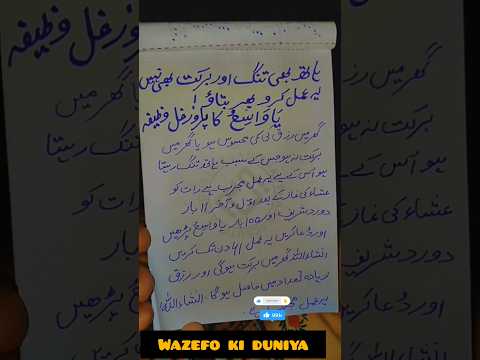 ہاتھ بھی تنگ اور برکت بھی نہیں
یہ عمل کرو پھر بتاؤ!
یَا وَاسِعُ کا پاورفل وظیفہ
گھر میں رزق کی کمی محسوس ہو یا گھر میں
برکت نہ ہو جس کے سبب ہاتھ تنگ رہتا
ہو اس کے لیے یہ عمل مجرب ہے رات کو
عشاء کی نماز کے بعد اول و آخر 11 بار
درود شریف اور بار یا واسع پڑھیں
اور دعا کریں یہ عمل 41 دن تک کریں
انشاءاللہ گھر میں برکت ہوگی اور رزق
زیادہ تعداد میں حاصل ہو گا۔ انشاءاللہ
یہ عمل
گھر میں
برکت نہ
ہو اس کے
عشاء کی نماز
درود شریف
پڑھیں
اور دعا کریں
99k
WAZEFO KI DUNIYA